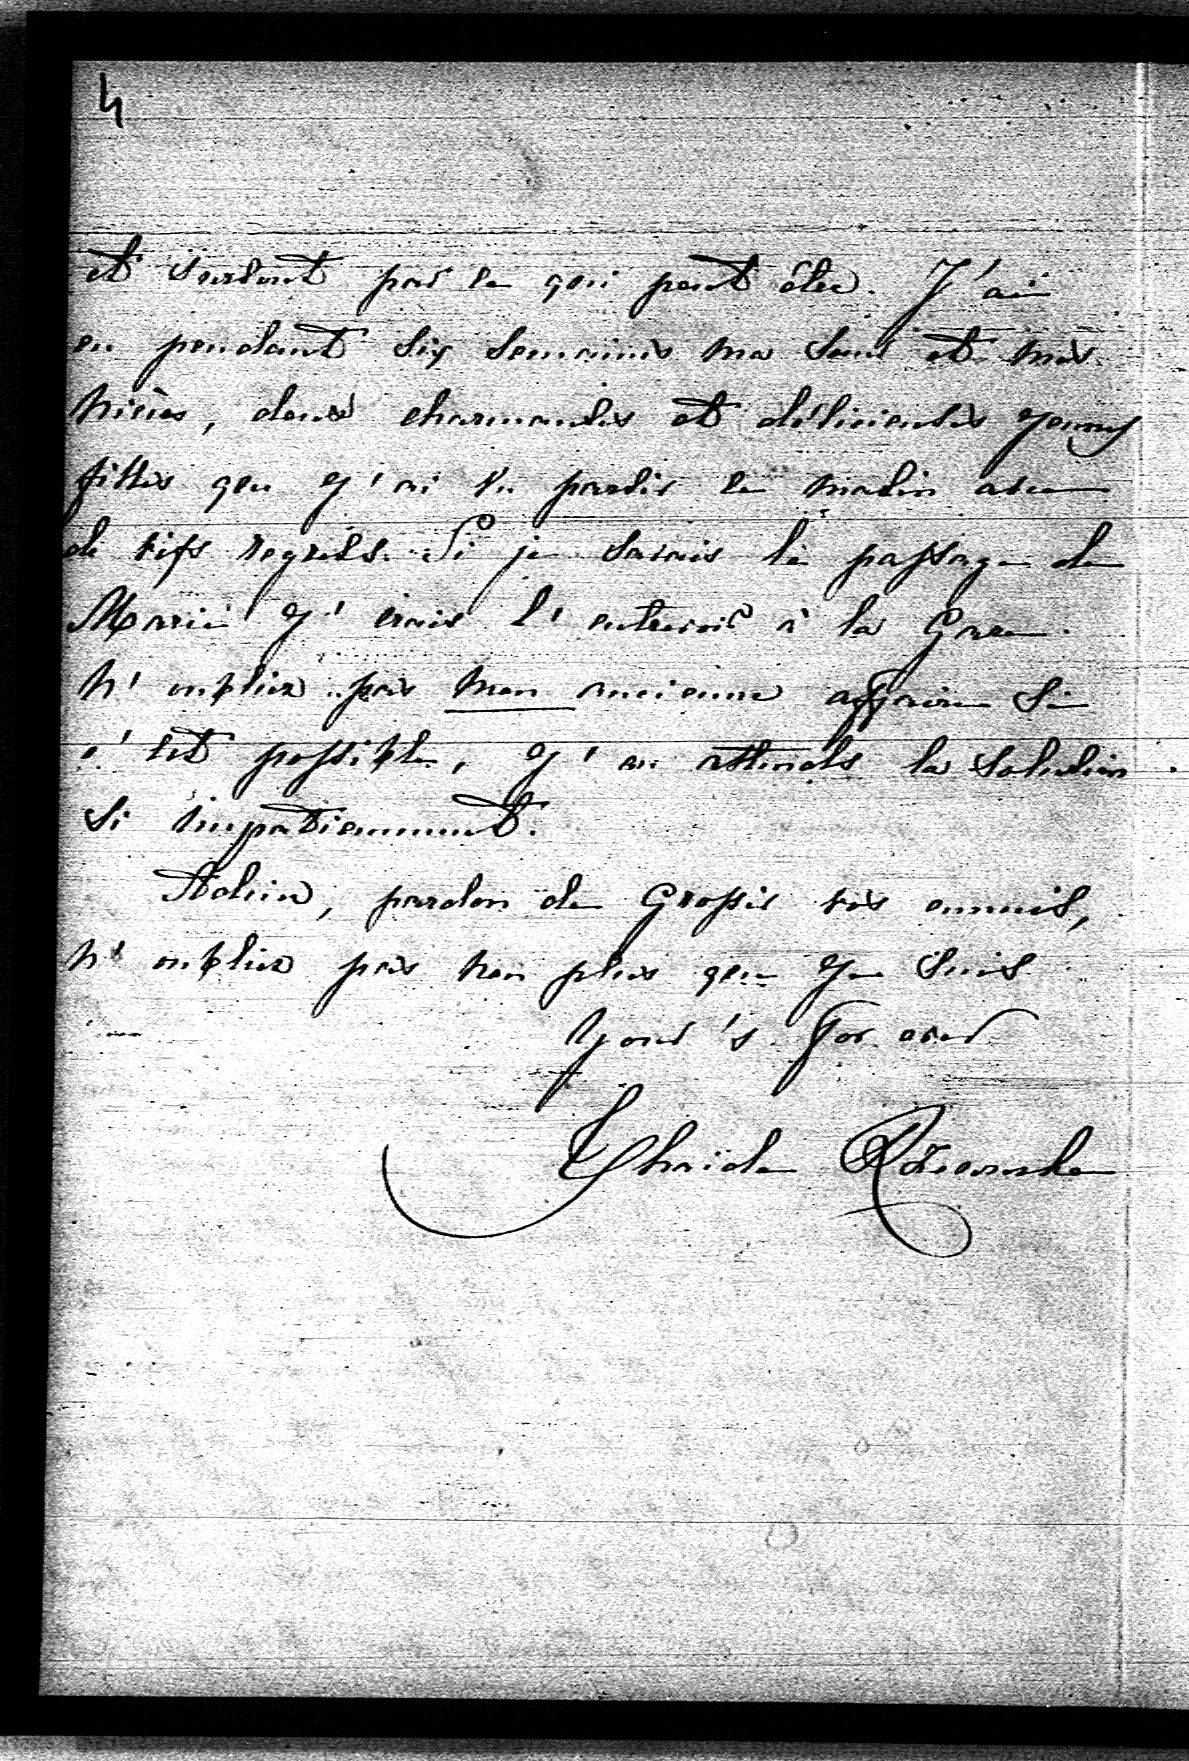 4
et surtout par ce qui peut être. J'ai
eu pendant six semaines ma sœur et mes
nièces, deux charmantes et délicieuses jeunes
filles que j'ai vu partir ce matin avec
de vifs regrets. Si je savais le passage de
Marie j'irais l'entrevoir à la Gare.
N'oubliez pas mon ancienne affaire si
c'est possible, j'en attends la solution
si impatiemment.
Adieu, pardon de grossir vos ennuis,
n'oubliez pas non plus que je suis
Your's for ever